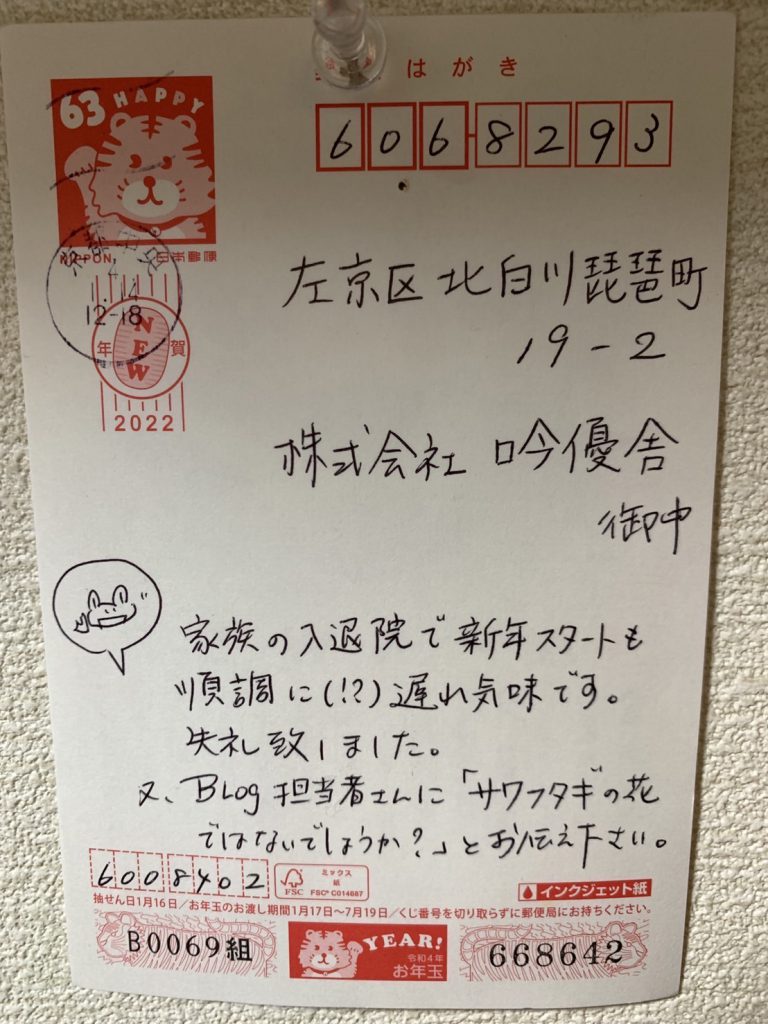 はがき
63 HAPPY
NIPPON 日本郵便
6068293
12-18
年 NEW 賀
2022
左京区北白川琵琶町
19-2
株式会社 吟優舎
御中
家族の入退院で新年スタートも
順調に(!?)遅れ気味です。
失礼致しました。
又、Blog担当者さんに「サワフタギの花
ではないでしょうか?」とお伝え下さい。
6008402
FSC ミックス 紙 FSC® C014687
インクジェット紙
抽せん日1月16日/お年玉のお渡し期間1月17日~7月19日/くじ番号を切り取らずに郵便局にお持ちください。
B0069組
YEAR!
令和4年
お年玉
668642